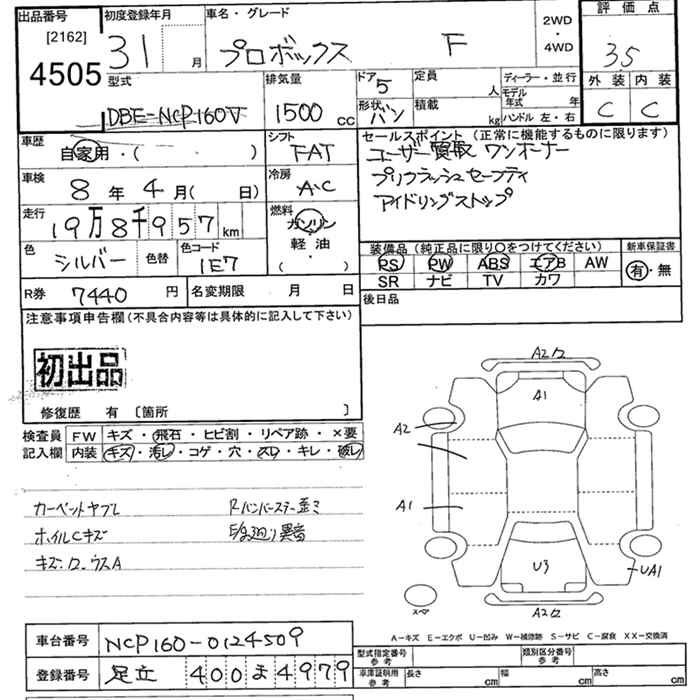 出品番号
[2162]
4505
初度登録年月
31 月
車名・グレード
プロボックス F
2WD
・
4WD
評価点
3.5
外装 内装
C C
型式
DBE-NCP160V
排気量
1500 CC
ドア
5
形状
バン
定員
人
積載
kg
ディーラー・並行
モデル
年式 年
ハンドル 左・右
車歴
自家用・( )
シフト
FAT
車検
8年4月( 日)
冷房
A・C
走行
19万8千957 km
燃料
ガソリン
・
軽油
( )
色
シルバー
色替
色コード
1E7
R券 7440 円
名変期限 月 日
セールスポイント (正常に機能するものに限ります)
ユーザー買取 ワンオーナー
プリクラッシュセーフティ
アイドリングストップ
装備品(純正品に限り○をつけてください)
PS PW ABS エアB AW
SR ナビ TV カワ
新車保証書
有・無
後日品
注意事項申告欄(不具合内容等は具体的に記入して下さい)
初出品
修復歴 有 〔箇所 〕
検査員
記入欄
FW キズ・飛石・ヒビ割・リペア跡・×要
内装 キズ・汚レ・コゲ・穴・スレ・キレ・破レ
カーペットヤブレ
ホイルCキズ
Rバンパーステー歪ミ
A2
A1
A2
A1
U3
UA1
A2
A－キズ E－エクボ U－凹み W－補修跡 S－サビ C－腐食 XX－交換済
車台番号 NCP160-0124509
登録番号 足立 400 ま 4979
型式指定番号
参考
類別区分番号
参考
車庫証明用
参考
長さ cm
幅 cm
高さ cm